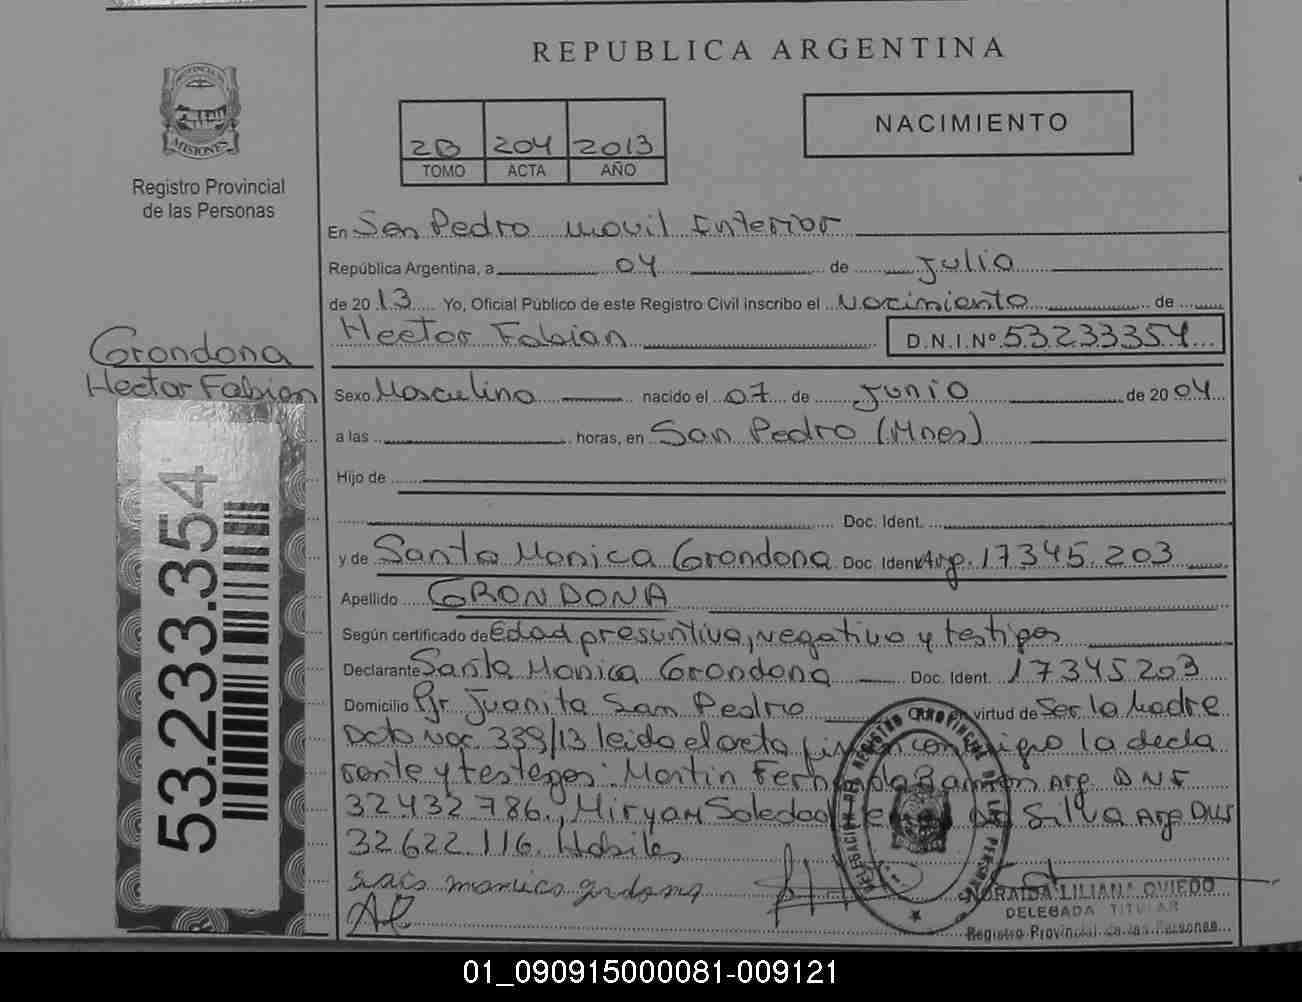 REPUBLICA ARGENTINA
PROVINCIA DE
MISIONES
Registro Provincial
de las Personas
2B 204 2013
TOMO ACTA AÑO
NACIMIENTO
En San Pedro movil Interior
República Argentina, a 04 de Julio
de 2013 Yo, Oficial Público de este Registro Civil inscribo el Nacimiento de
Hector Fabian D.N.I.Nº 53233354
Grondona
Hector Fabian
Sexo Masculino nacido el 07 de Junio de 2004
a las horas, en San Pedro (Mnes)
Hijo de
Doc. Ident.
y de Santa Monica Grondona Doc. Ident. Arg. 17345.203
Apellido GRONDONA
Según certificado de edad presuntiva, negativo y testigos
Declarante Santa Monica Grondona Doc. Ident. 17345203
Domicilio Pje Juanita San Pedro en virtud de Ser la Madre
Dcto nac 339/13 leida el acta conmigo la decla
rante y testigos: Martin Ramon Arg. DNI
32.432.786., Miryam Soledad Da Silva Arg DNI
32622.116. Habiles
53.233.354
DELEGACION DEL REGISTRO PROVINCIAL DE LAS PERSONAS
NORAIDA LILIANA OVIEDO
DELEGADA TITULAR
Registro Provincial de las Personas
01_090915000081-009121